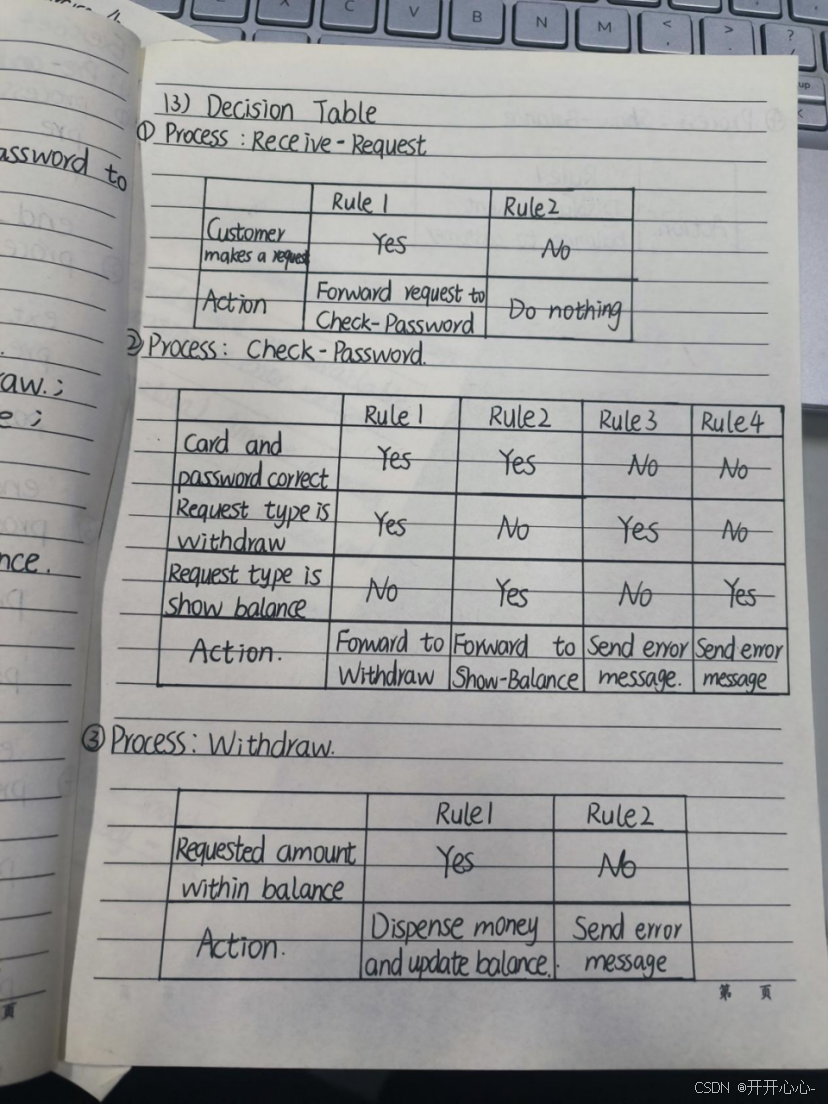 C V B N M < > ?
assword to
raw.;
e ;
nce.
13) Decision Table
① Process : Receive-Request
Rule 1 Rule2
Customer makes a request Yes No
Action Forward request to Check-Password Do nothing
② Process: Check-Password.
Rule 1 Rule2 Rule 3 Rule4
Card and password correct Yes Yes No No
Request type is withdraw Yes No Yes No
Request type is show balance No Yes No Yes
Action. Forward to Withdraw Forward to Show-Balance Send error message. Send error message
③ Process: Withdraw.
Rule1 Rule2
Requested amount within balance Yes No
Action. Dispense money and update balance. Send error message
第 页
页
CSDN @开开心心-